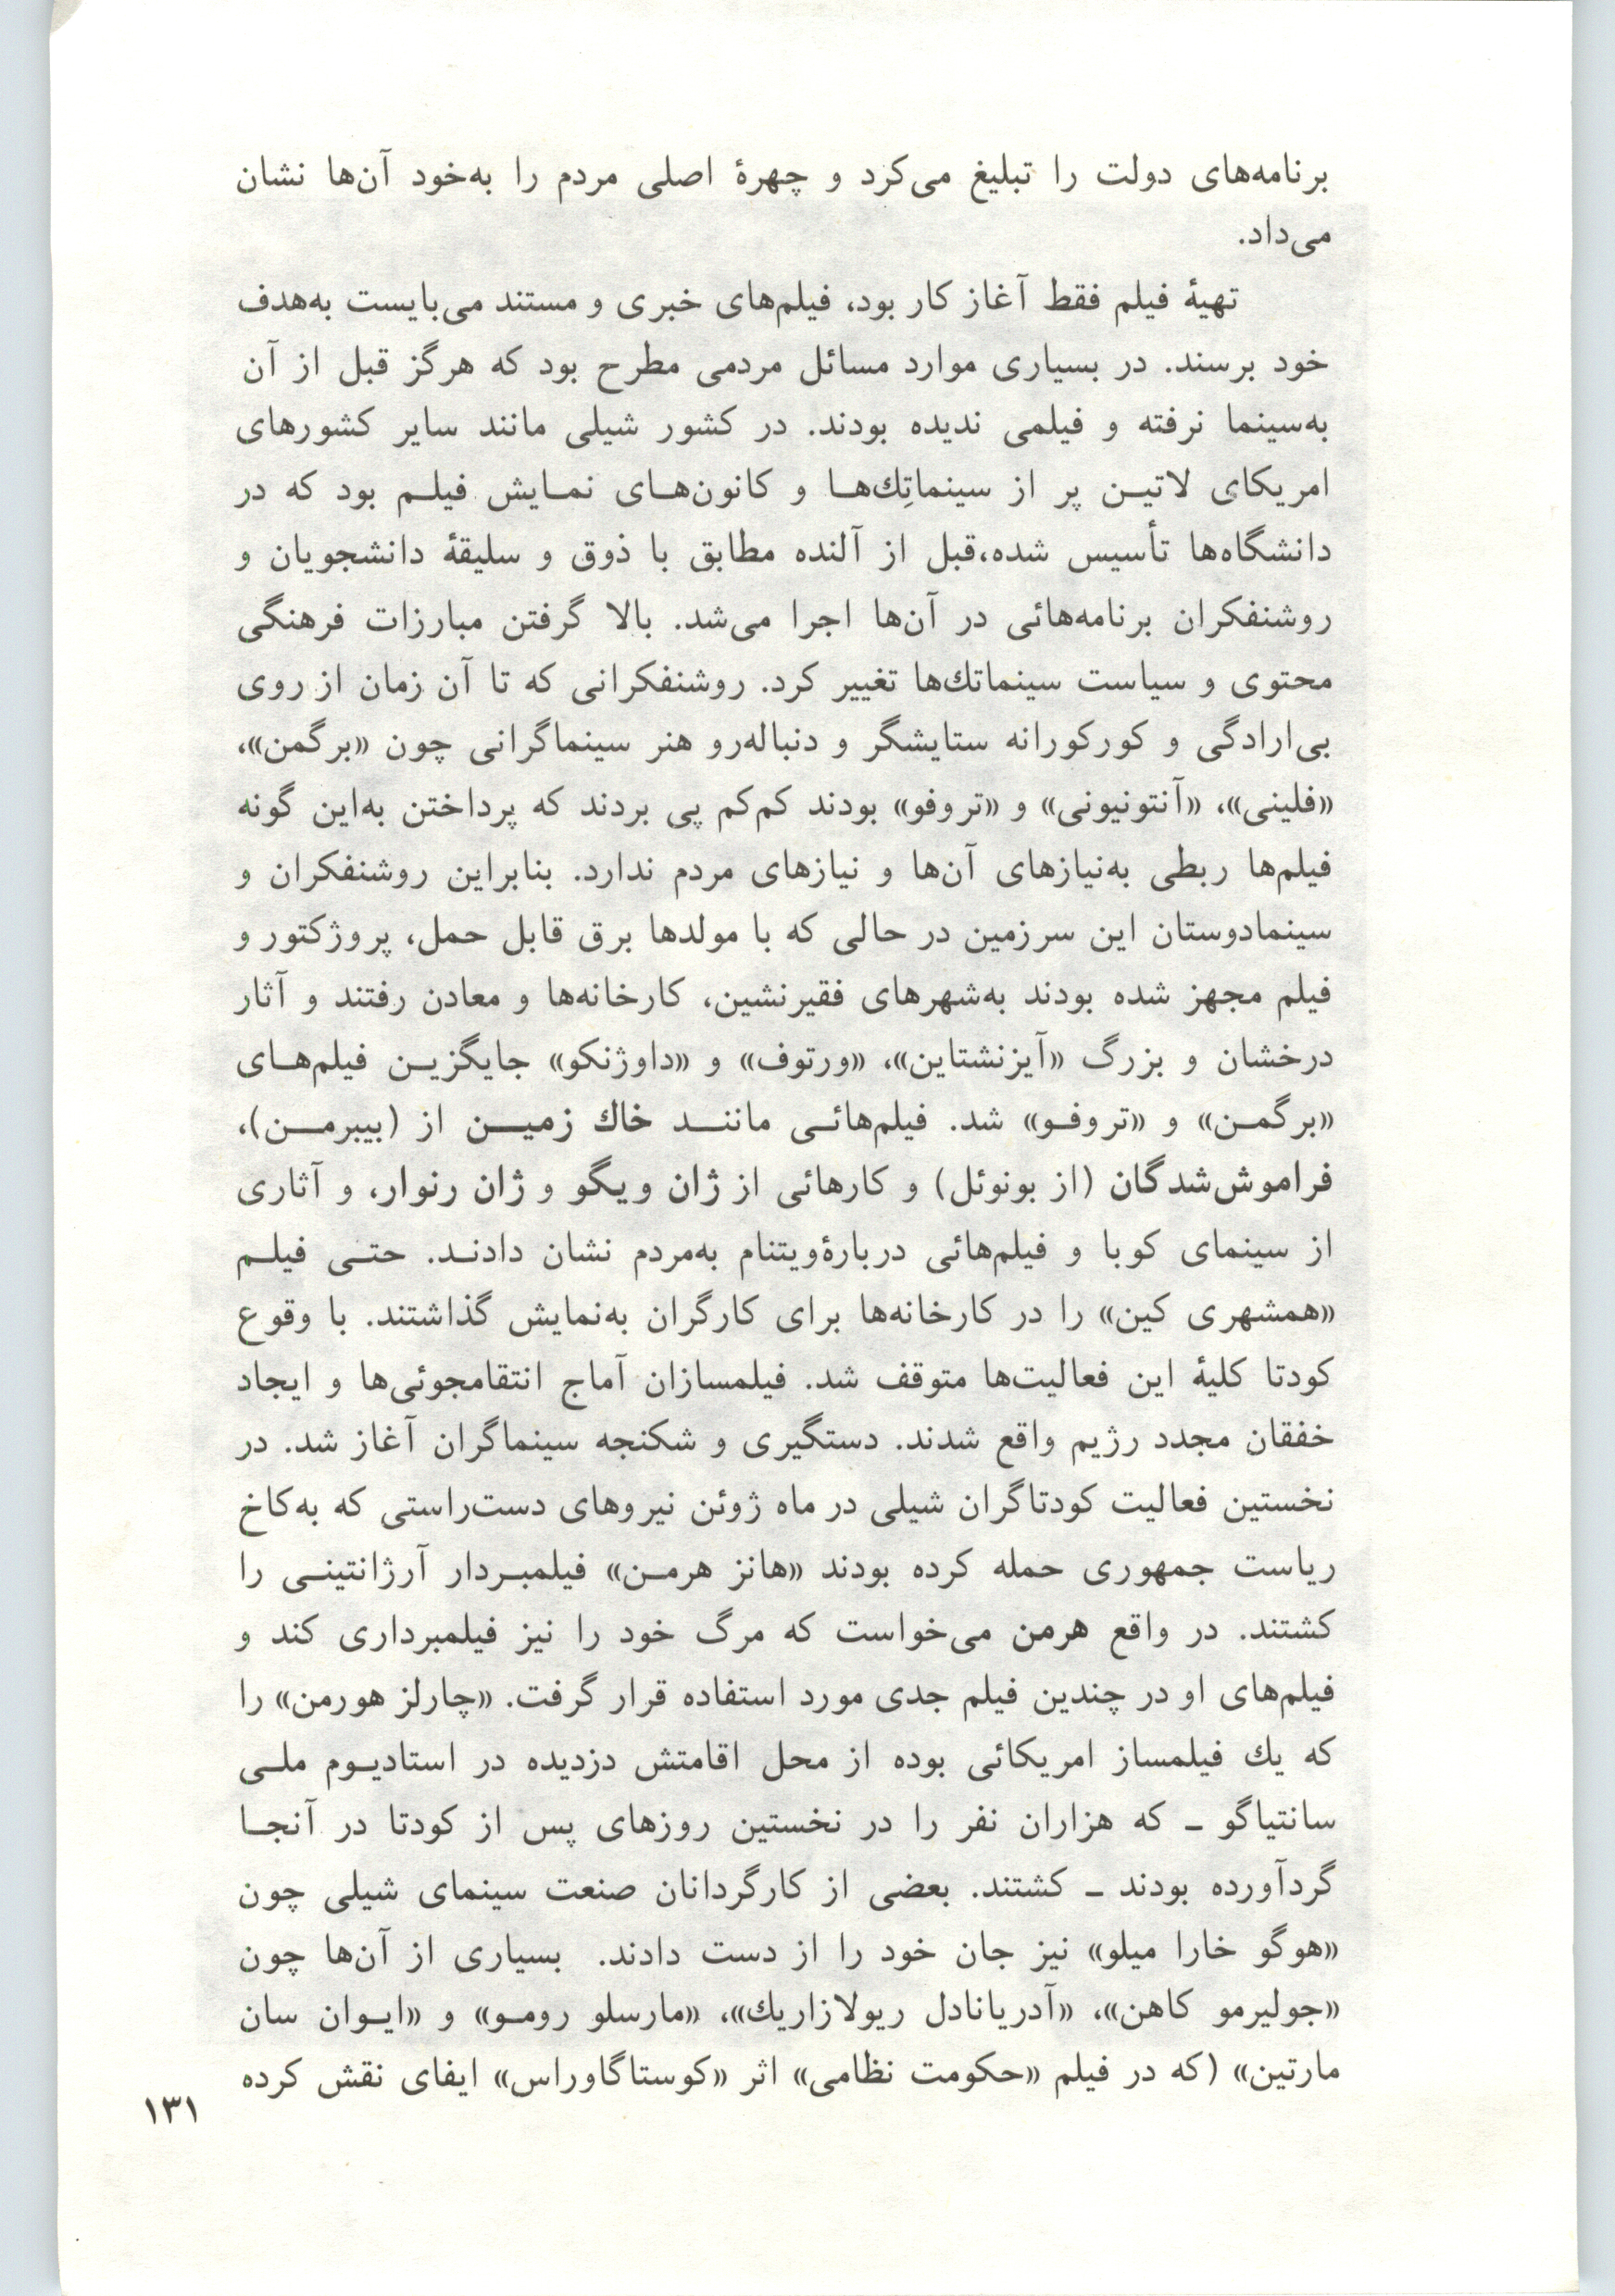 برنامه‌های دولت را تبلیغ می‌کرد و چهرهٔ اصلی مردم را به‌خود آن‌ها نشان
می‌داد.
تهیهٔ فیلم فقط آغاز کار بود، فیلم‌های خبری و مستند می‌بایست به‌هدف
خود برسند. در بسیاری موارد مسائل مردمی مطرح بود که هرگز قبل از آن
به‌سینما نرفته و فیلمی ندیده بودند. در کشور شیلی مانند سایر کشورهای
امریکای لاتیـن پر از سینماتِك‌هـا و کانون‌هـای نمـایش فیلـم بود که در
دانشگاه‌ها تأسیس شده،قبل از آلنده مطابق با ذوق و سلیقهٔ دانشجویان و
روشنفکران برنامه‌هائی در آن‌ها اجرا می‌شد. بالا گرفتن مبارزات فرهنگی
محتوی و سیاست سینماتك‌ها تغییر کرد. روشنفکرانی که تا آن زمان از روی
بی‌ارادگی و کورکورانه ستایشگر و دنباله‌رو هنر سینماگرانی چون «برگمن»،
«فلینی»، «آنتونیونی» و «تروفو» بودند کم‌کم پی بردند که پرداختن به‌این گونه
فیلم‌ها ربطی به‌نیازهای آن‌ها و نیازهای مردم ندارد. بنابراین روشنفکران و
سینمادوستان این سرزمین در حالی که با مولدها برق قابل حمل، پروژکتور و
فیلم مجهز شده بودند به‌شهرهای فقیرنشین، کارخانه‌ها و معادن رفتند و آثار
درخشان و بزرگ «آیزنشتاین»، «ورتوف» و «داوژنکو» جایگزیـن فیلم‌هـای
«برگمـن» و «تروفـو» شد. فیلم‌هائـی ماننـد خاك زمیـن از (بیبرمـن)،
فراموش‌شدگان (از بونوئل) و کارهائی از ژان ویگو و ژان رنوار، و آثاری
از سینمای کوبا و فیلم‌هائی دربارهٔویتنام به‌مردم نشان دادنـد. حتـی فیلـم
«همشهری کین» را در کارخانه‌ها برای کارگران به‌نمایش گذاشتند. با وقوع
کودتا کلیهٔ این فعالیت‌ها متوقف شد. فیلمسازان آماج انتقامجوئی‌ها و ایجاد
خفقان مجدد رژیم واقع شدند. دستگیری و شکنجه سینماگران آغاز شد. در
نخستین فعالیت کودتاگران شیلی در ماه ژوئن نیروهای دست‌راستی که به‌کاخ
ریاست جمهوری حمله کرده بودند «هانز هرمـن» فیلمبـردار آرژانتینـی را
کشتند. در واقع هرمن می‌خواست که مرگ خود را نیز فیلمبرداری کند و
فیلم‌های او در چندین فیلم جدی مورد استفاده قرار گرفت. «چارلز هورمن» را
که یك فیلمساز امریکائی بوده از محل اقامتش دزدیده در استادیـوم ملـی
سانتیاگو ـ که هزاران نفر را در نخستین روزهای پس از کودتا در آنجـا
گردآورده بودند ـ کشتند. بعضی از کارگردانان صنعت سینمای شیلی چون
«هوگو خارا میلو» نیز جان خود را از دست دادند. بسیاری از آن‌ها چون
«جولیرمو کاهن»، «آدریانادل ریولازاریك»، «مارسلو رومـو» و «ایـوان سان
مارتین» (که در فیلم «حکومت نظامی» اثر «کوستاگاوراس» ایفای نقش کرده
۱۳۱